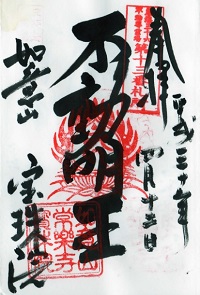 奉拝
平成三十年
四月十三日
第十三番札所
不動明王
如意山
宝珠院
常楽寺